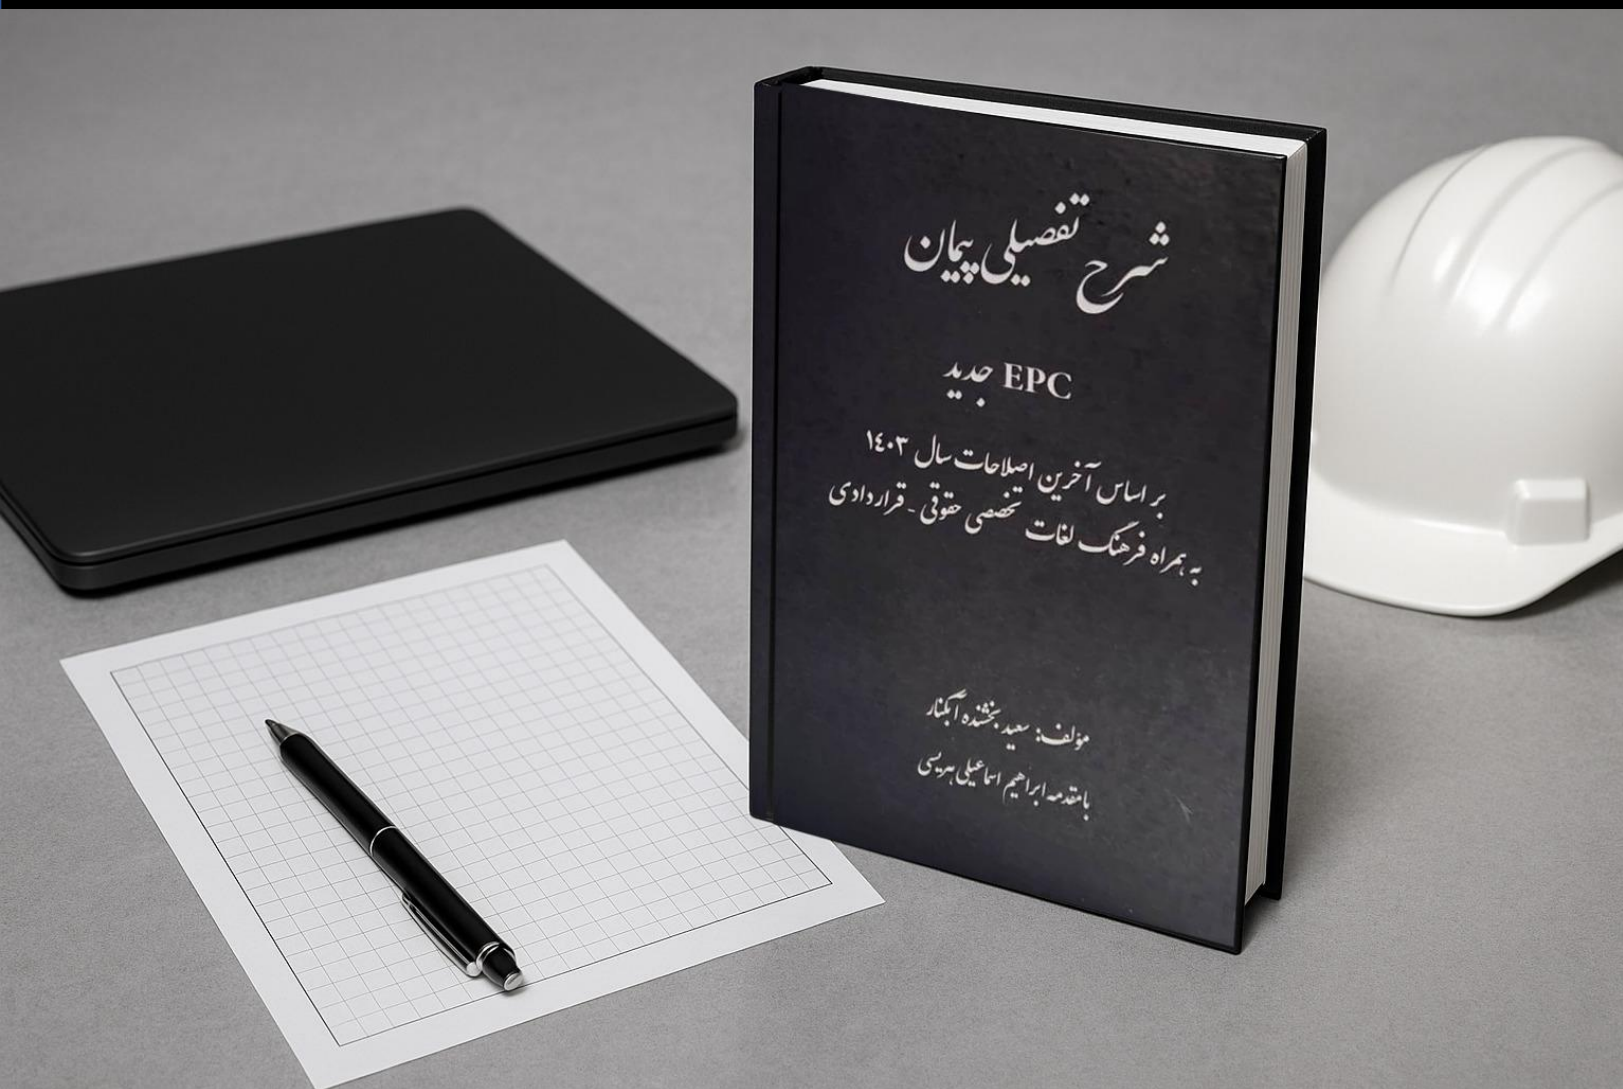 شرح تفصیلی پیمان
EPC جدید
بر اساس آخرین اصلاحات سال ۱۴۰۳
به همراه فرهنگ لغات تخصصی حقوقی - قراردادی
مؤلف: سعید بخشنده آبکنار
با مقدمه ابراهیم اسماعیلی هریسی